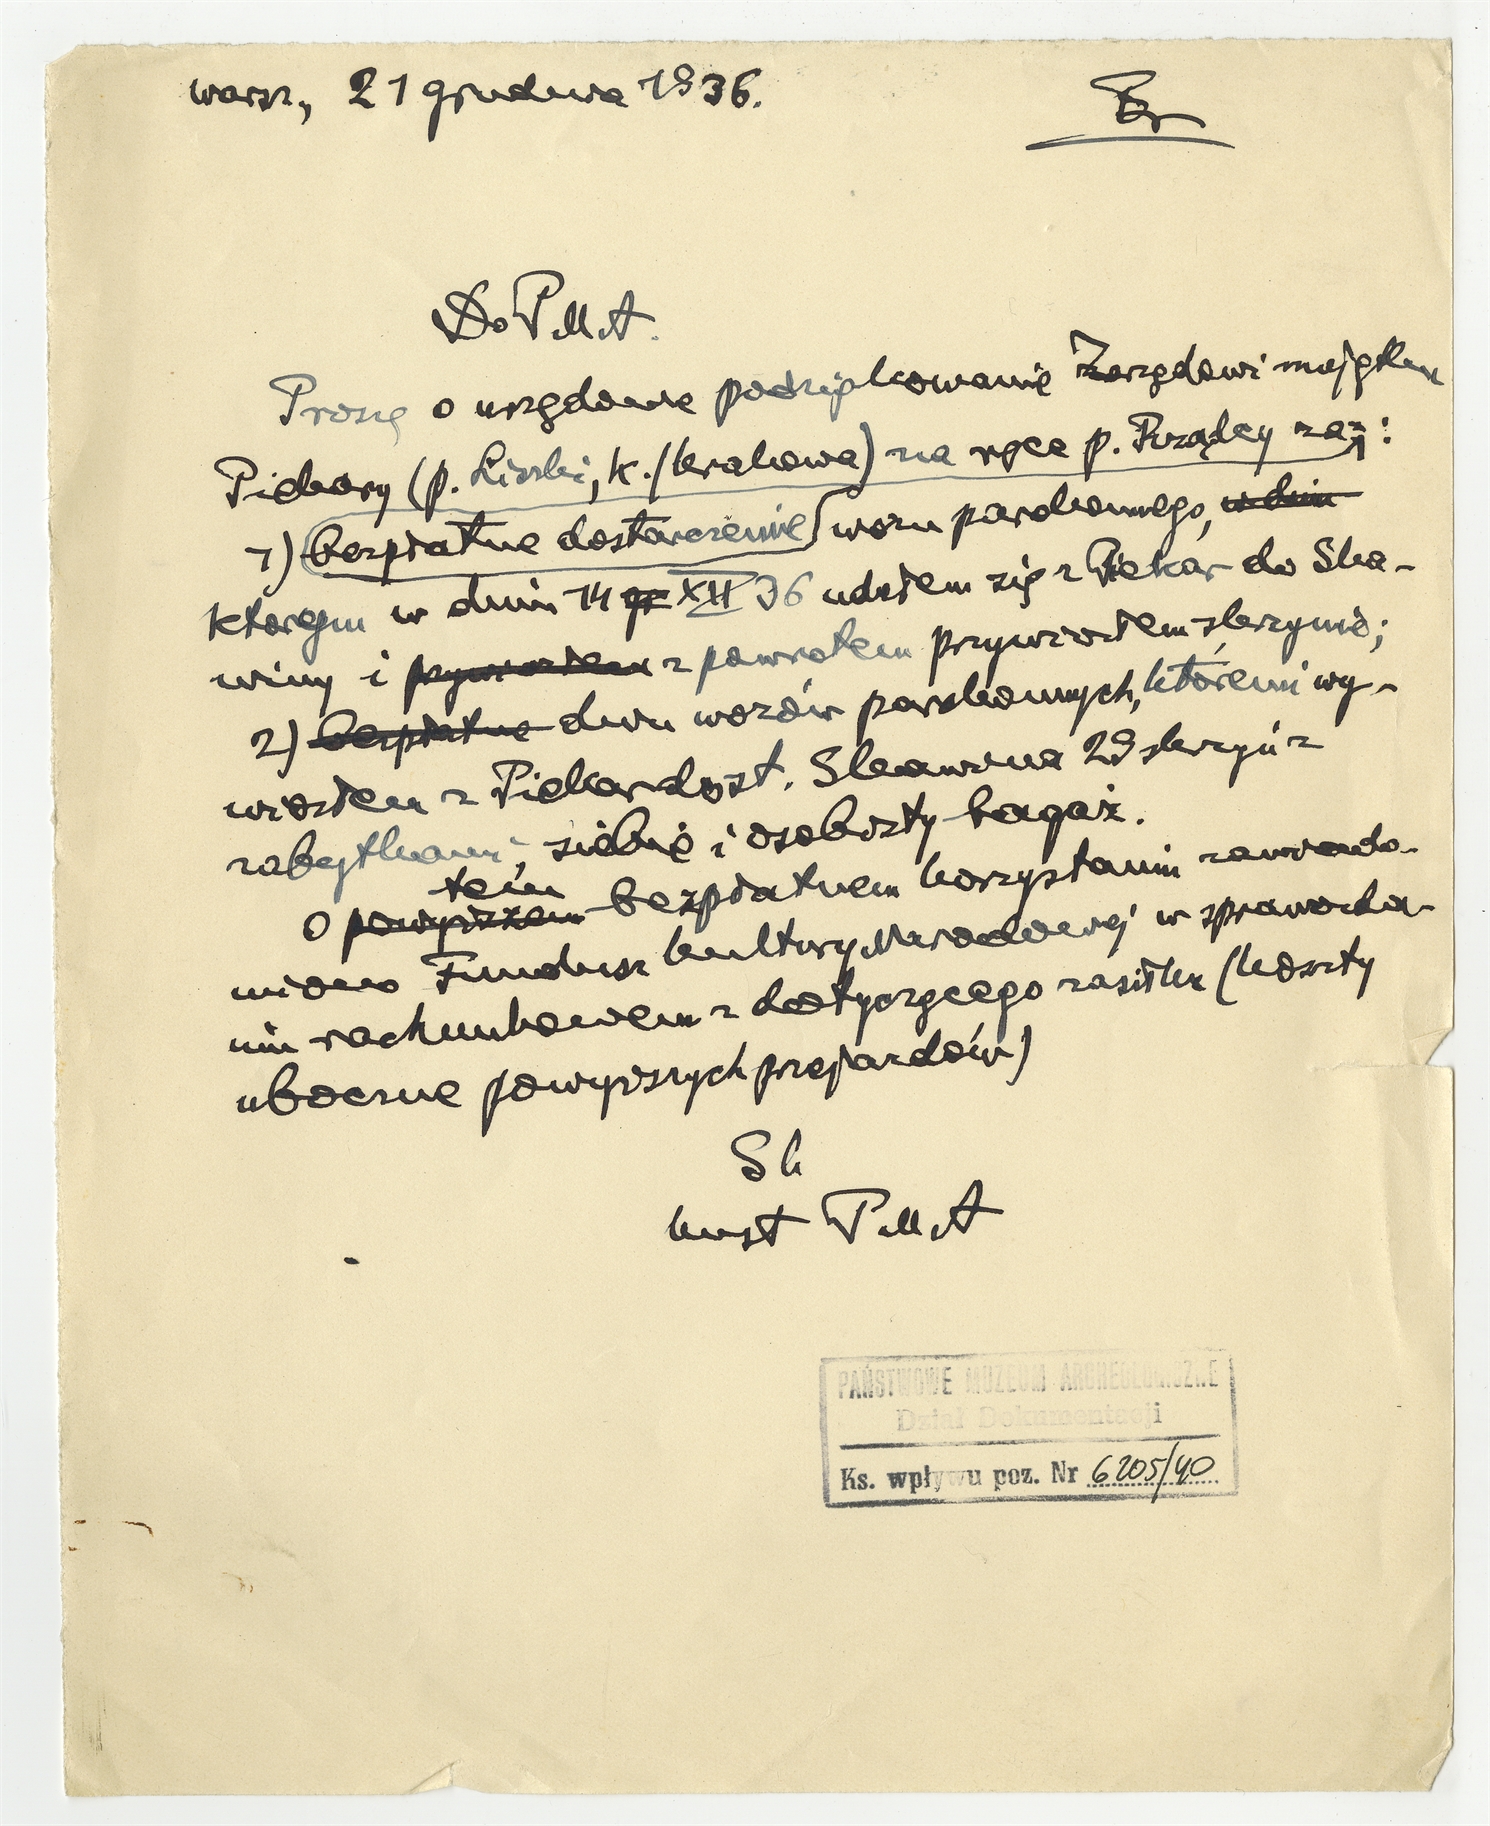 warsz, 21 grudnia 1936.
Do PMA.
Proszę o urzędowe podziękowanie Zarządowi majątku
Piekary (p. Liszki, k./Krakowa) na ręce p. Rządcy za:
1) bezpłatne dostarczenie wozu parokonnego, w dniu
którego w dniu 14 XII 36 udałem się z Piekar do Ska-
winy i przywiozłem z powrotem przywiozłem skrzynie;
2) bezpłatne dwu wozów parokonnych, któremi wy-
wiozłem z Piekar do st. Skawina 29 skrzyń z
zabytkami, siebie i osobisty bagaż.
tem
O powyższem bezpłatnem korzystaniu zawiado-
miono Fundusz Kultury Narodowej w sprawozda-
niu rachunkowem z dotyczącego zasiłku (koszty
uboczne powyższych przejazdów)
Sk
kust PMA
PAŃSTWOWE MUZEUM ARCHEOLOGICZNE
Dział Dokumentacji
Ks. wpływu poz. Nr 6205/40